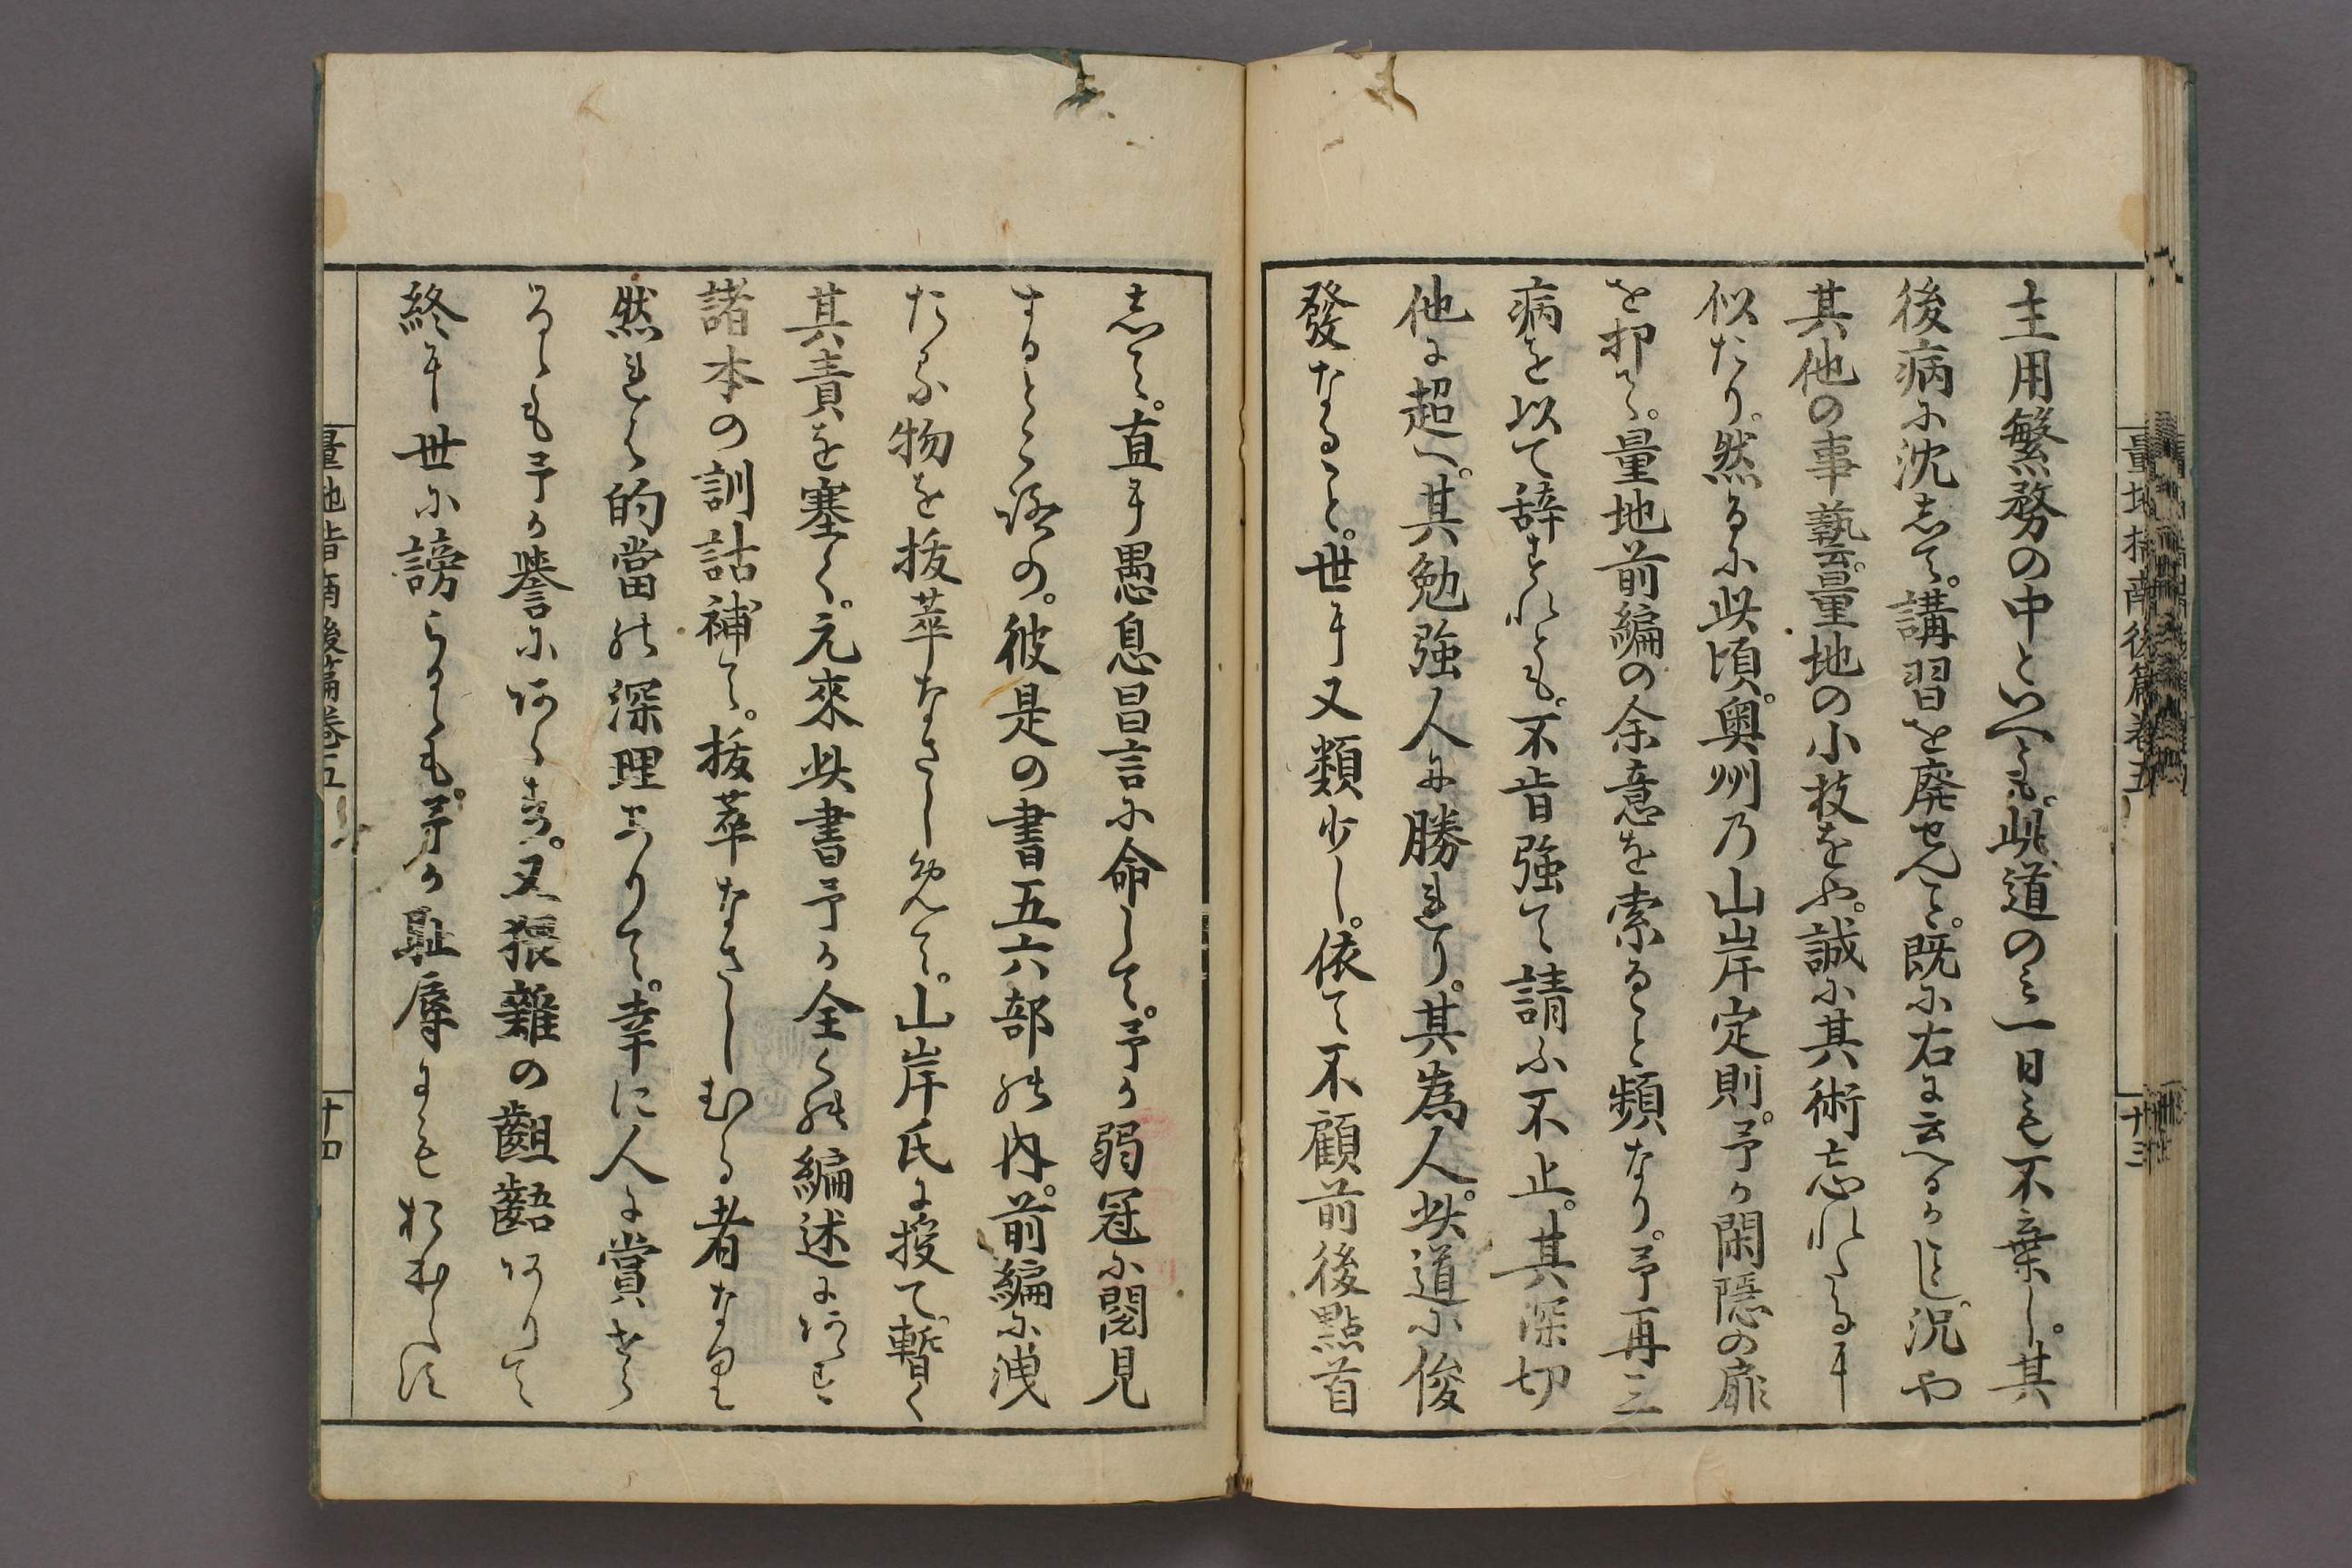 量地指南後篇卷五
十三
主用繁務の中といへとも。此道のミ一日も不棄し。其
後病に沈して。講習を廃せんと。既に右に云へるかことし。况や
其他の事藝。量地の小技をや。誠に其術忘れたるに
似たり。然るに此頃。奥州乃山岸定則。予か閑隠の扉
を抑て。量地前編の余意を索ること頻なり。予再三
病を以て辞すれとも。不肯強て請ふ不止。其深切
他に超へ。其勉強人に勝れり。其為人。此道に俊
發なること。世に又類少し。依て不顧前後點首
して。直に愚息昌言に命して。予か弱冠に閲見
するところの。彼是の書五六部の内。前編に洩
たる物を抜萃なさしめて。山岸氏に授て。暫く
其責を塞く。元來此書予か全くの編述にあらす
諸本の訓詁補て。抜萃なさしむる者なり
然れは的當の深理ありて。幸に人に賞せら
るゝも予か誉にあらす。又猥雜の齟齬ありて
終に世に謗らるゝも。予か耻辱にもおよはす
量地指南後篇卷五
十四